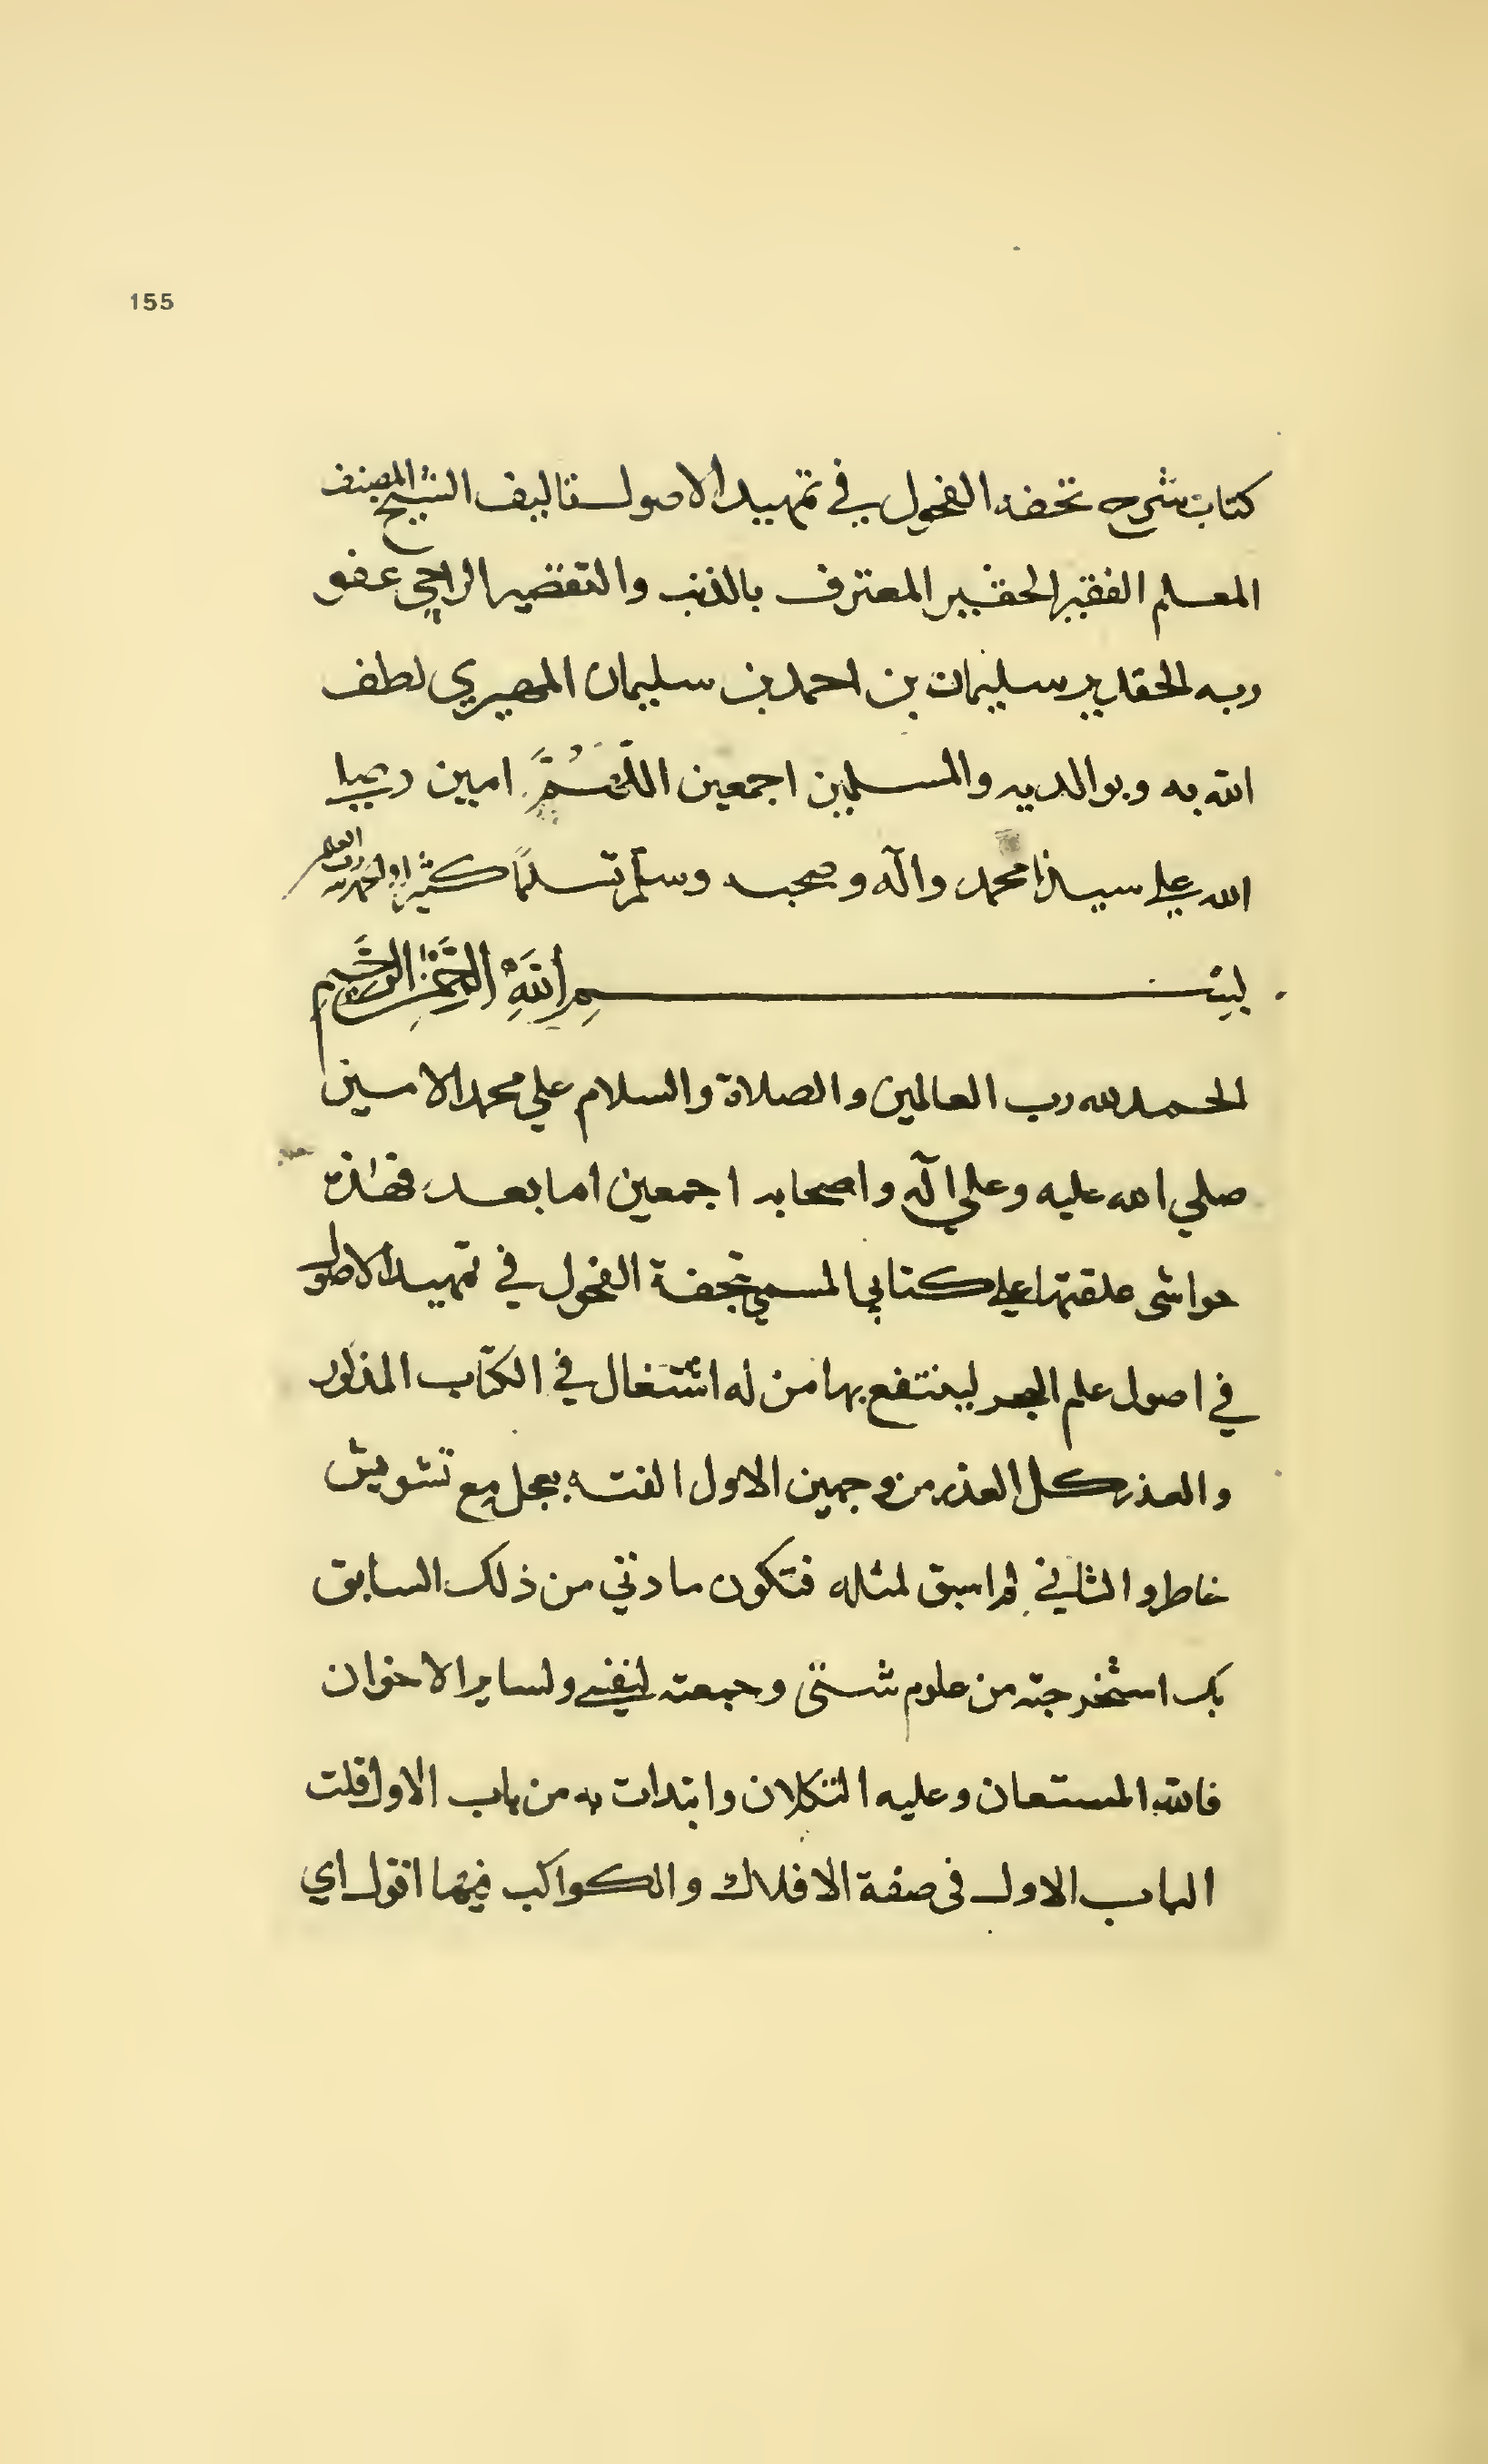 155
كتاب شرح تحفة الفحول في تمهيد الاصول تاليف الشيخ المصنف
المعلم الفقير الحقير المعترف بالذنب والتقصير الراجي عفو
ربه القدير سليمان بن احمد بن سليمان المهري لطف
الله به وبوالديه والمسلمين اجمعين اللهم امين وصلى
الله علي سيدنا محمد واله وصحبه وسلم تسليما كثيرا والحمد لله رب العلمين
بسم الله الرحمن الرحيم
الحمد لله رب العالمين والصلاة والسلام علي محمد الامين
صلي الله عليه وعلي اله واصحابه اجمعين اما بعد فهذه
حواشي علقتها علي كتابي المسمي بتحفة الفحول في تمهيد الاصول
في اصول علم البحر لينتفع بها من له اشتغال في الكتاب المذكور
والعذر كل العذر من وجهين الاول الفته بعجل مع تشويش
خاطر والثاني لم اسبق لمثله فتكون مادتي من ذلك السابق
بل استخرجته من علوم شتى وجمعته لنفسي ولساير الاخوان
فالله المستعان وعليه التكلان وابتدات به من باب الاول قلت
الباب الاول في صفة الافلاك والكواكب فيها اقول اي